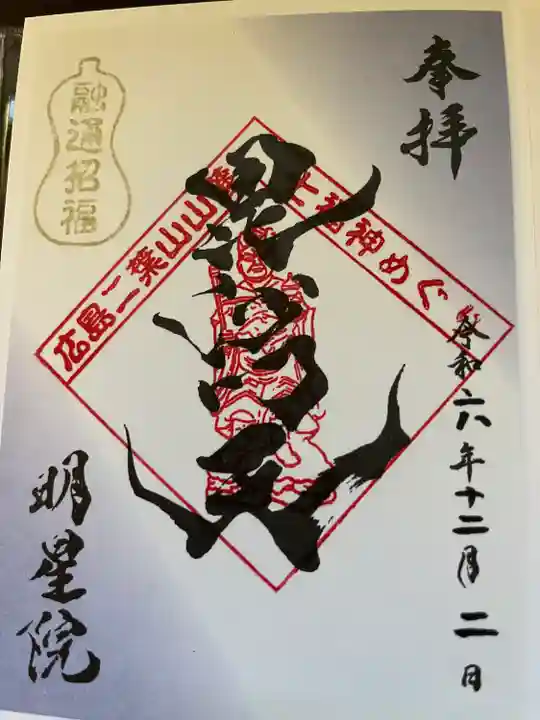 奉拝
融通招福
広島二葉山山麓七福神めぐり
毘沙門天
令和六年十二月二日
明星院